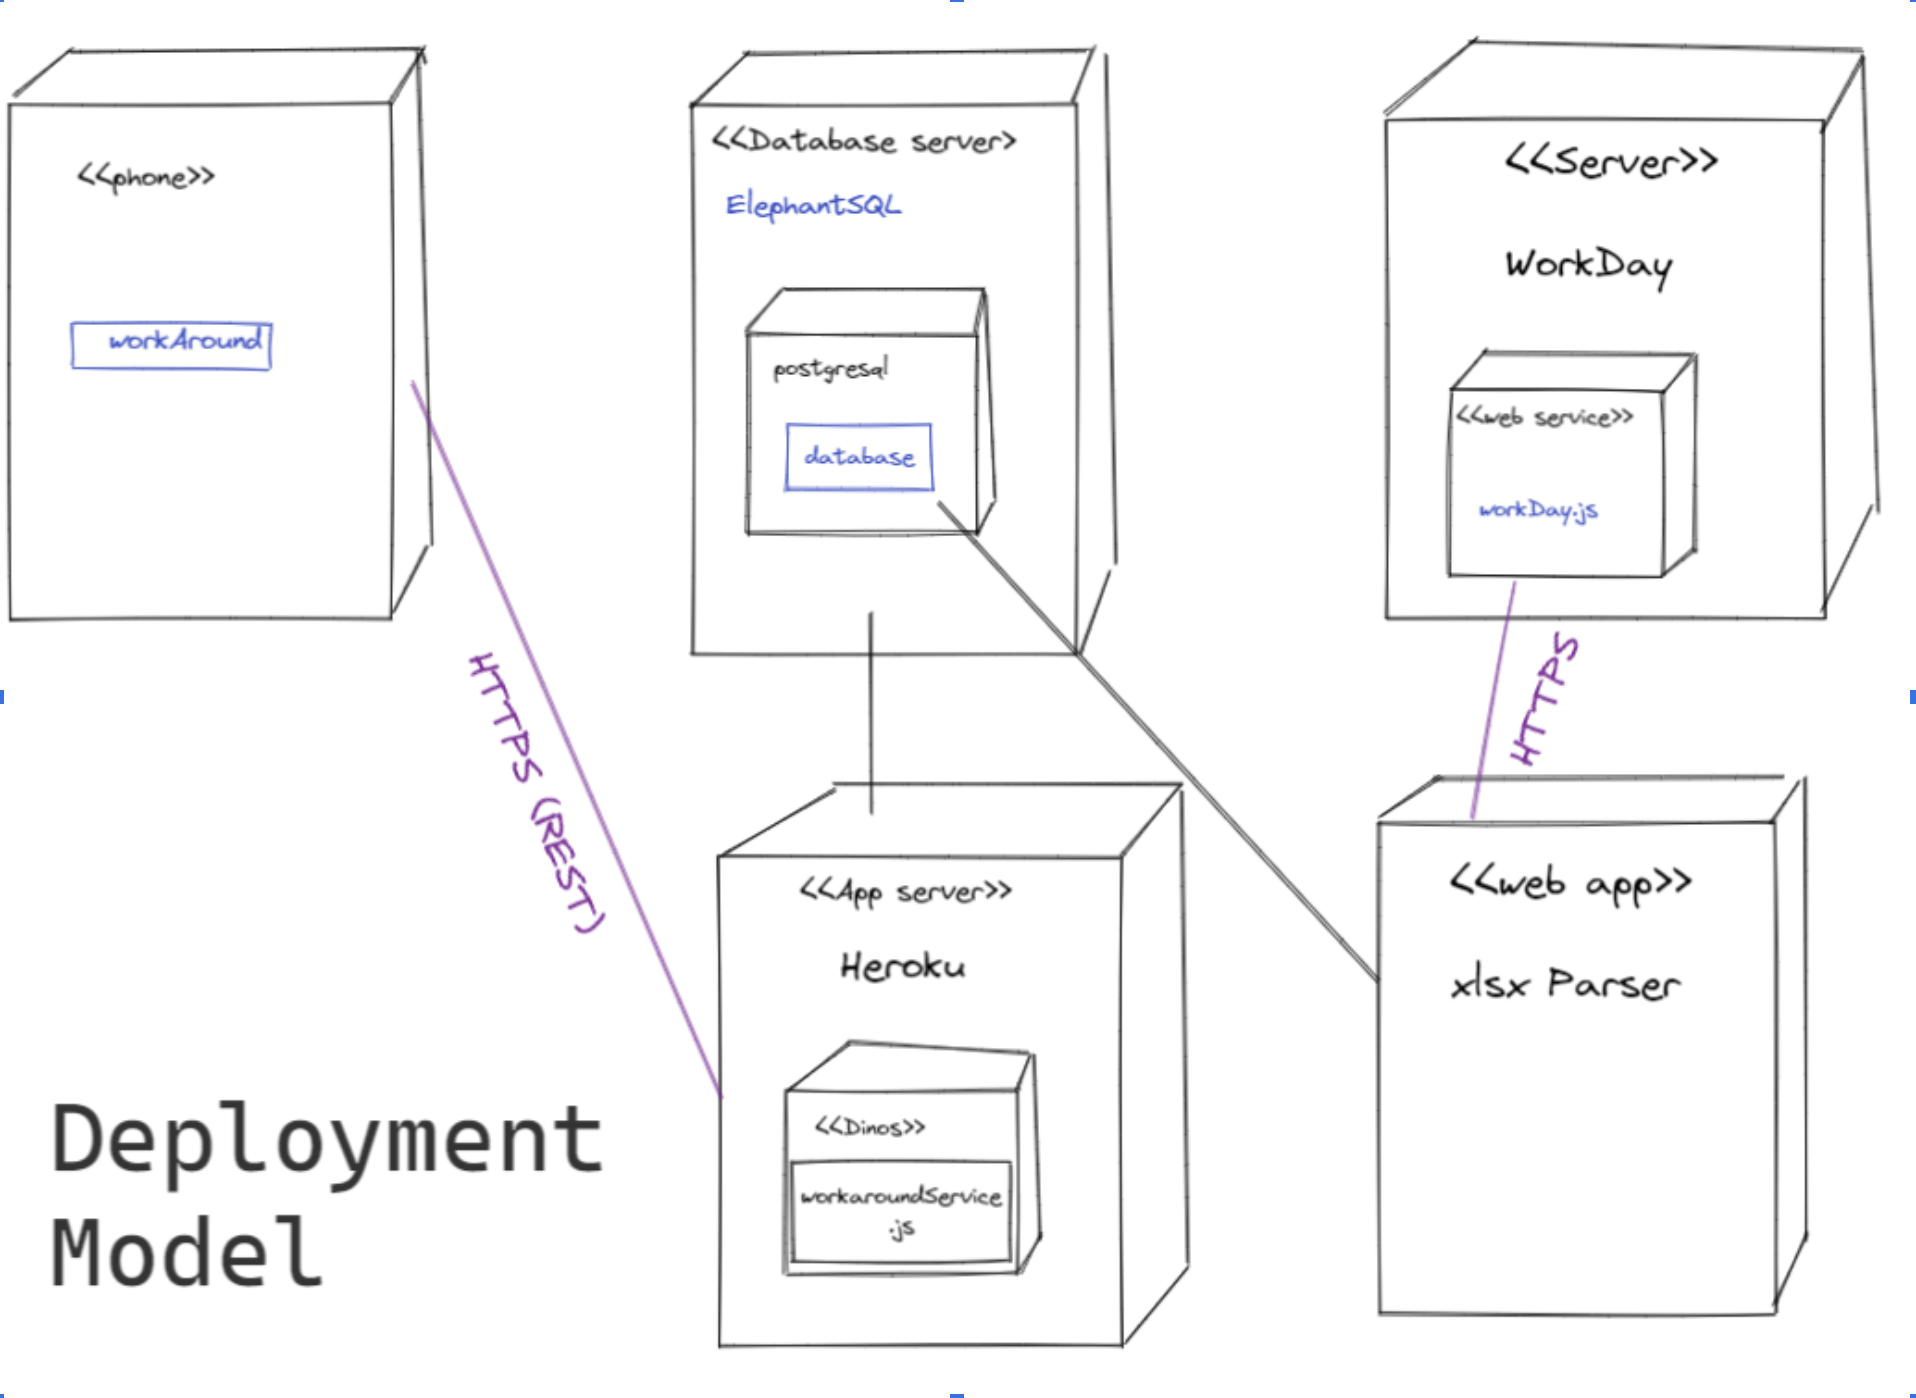 <<phone>>
workAround
<<Database server>
ElephantSQL
postgresql
database
<<Server>>
WorkDay
<<web service>>
workDay.js
HTTPS (REST)
HTTPS
<<App server>>
Heroku
<<Dinos>>
workaroundService
.js
<<web app>>
xlsx Parser
Deployment
Model